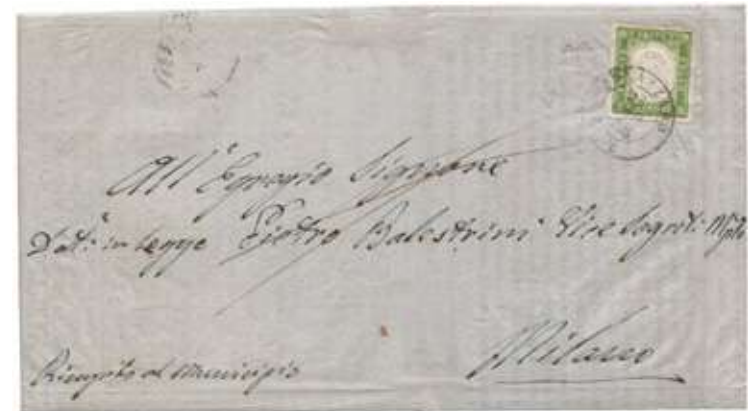 All' Egregio Signore
Dott. in Legge Pietro Balestrini Vice Segret. Mple
Milano
al Municipio